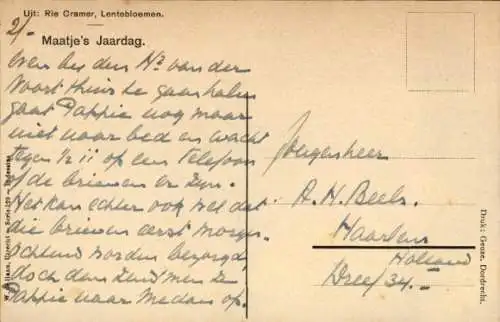 Uit: Rie Cramer, Lentebloemen.
2/-
Maatje's Jaardag.
even bij den Hr van der
Voort thuis te gaan halen
gaat Pappie nog maar
niet naar bed en wacht
tegen ½ 11 op een Telefoon
of de brieven er zijn.
Het kan echter ook wel dat
die brieven eerst morgen
ochtend worden bezorgd,
doch dan zend men ze
Pappie naar Medan op.
Jongenheer
A. H. Beels.
Haarlem
Holland
Dreef 34.
Druk: Geuze, Dordrecht.